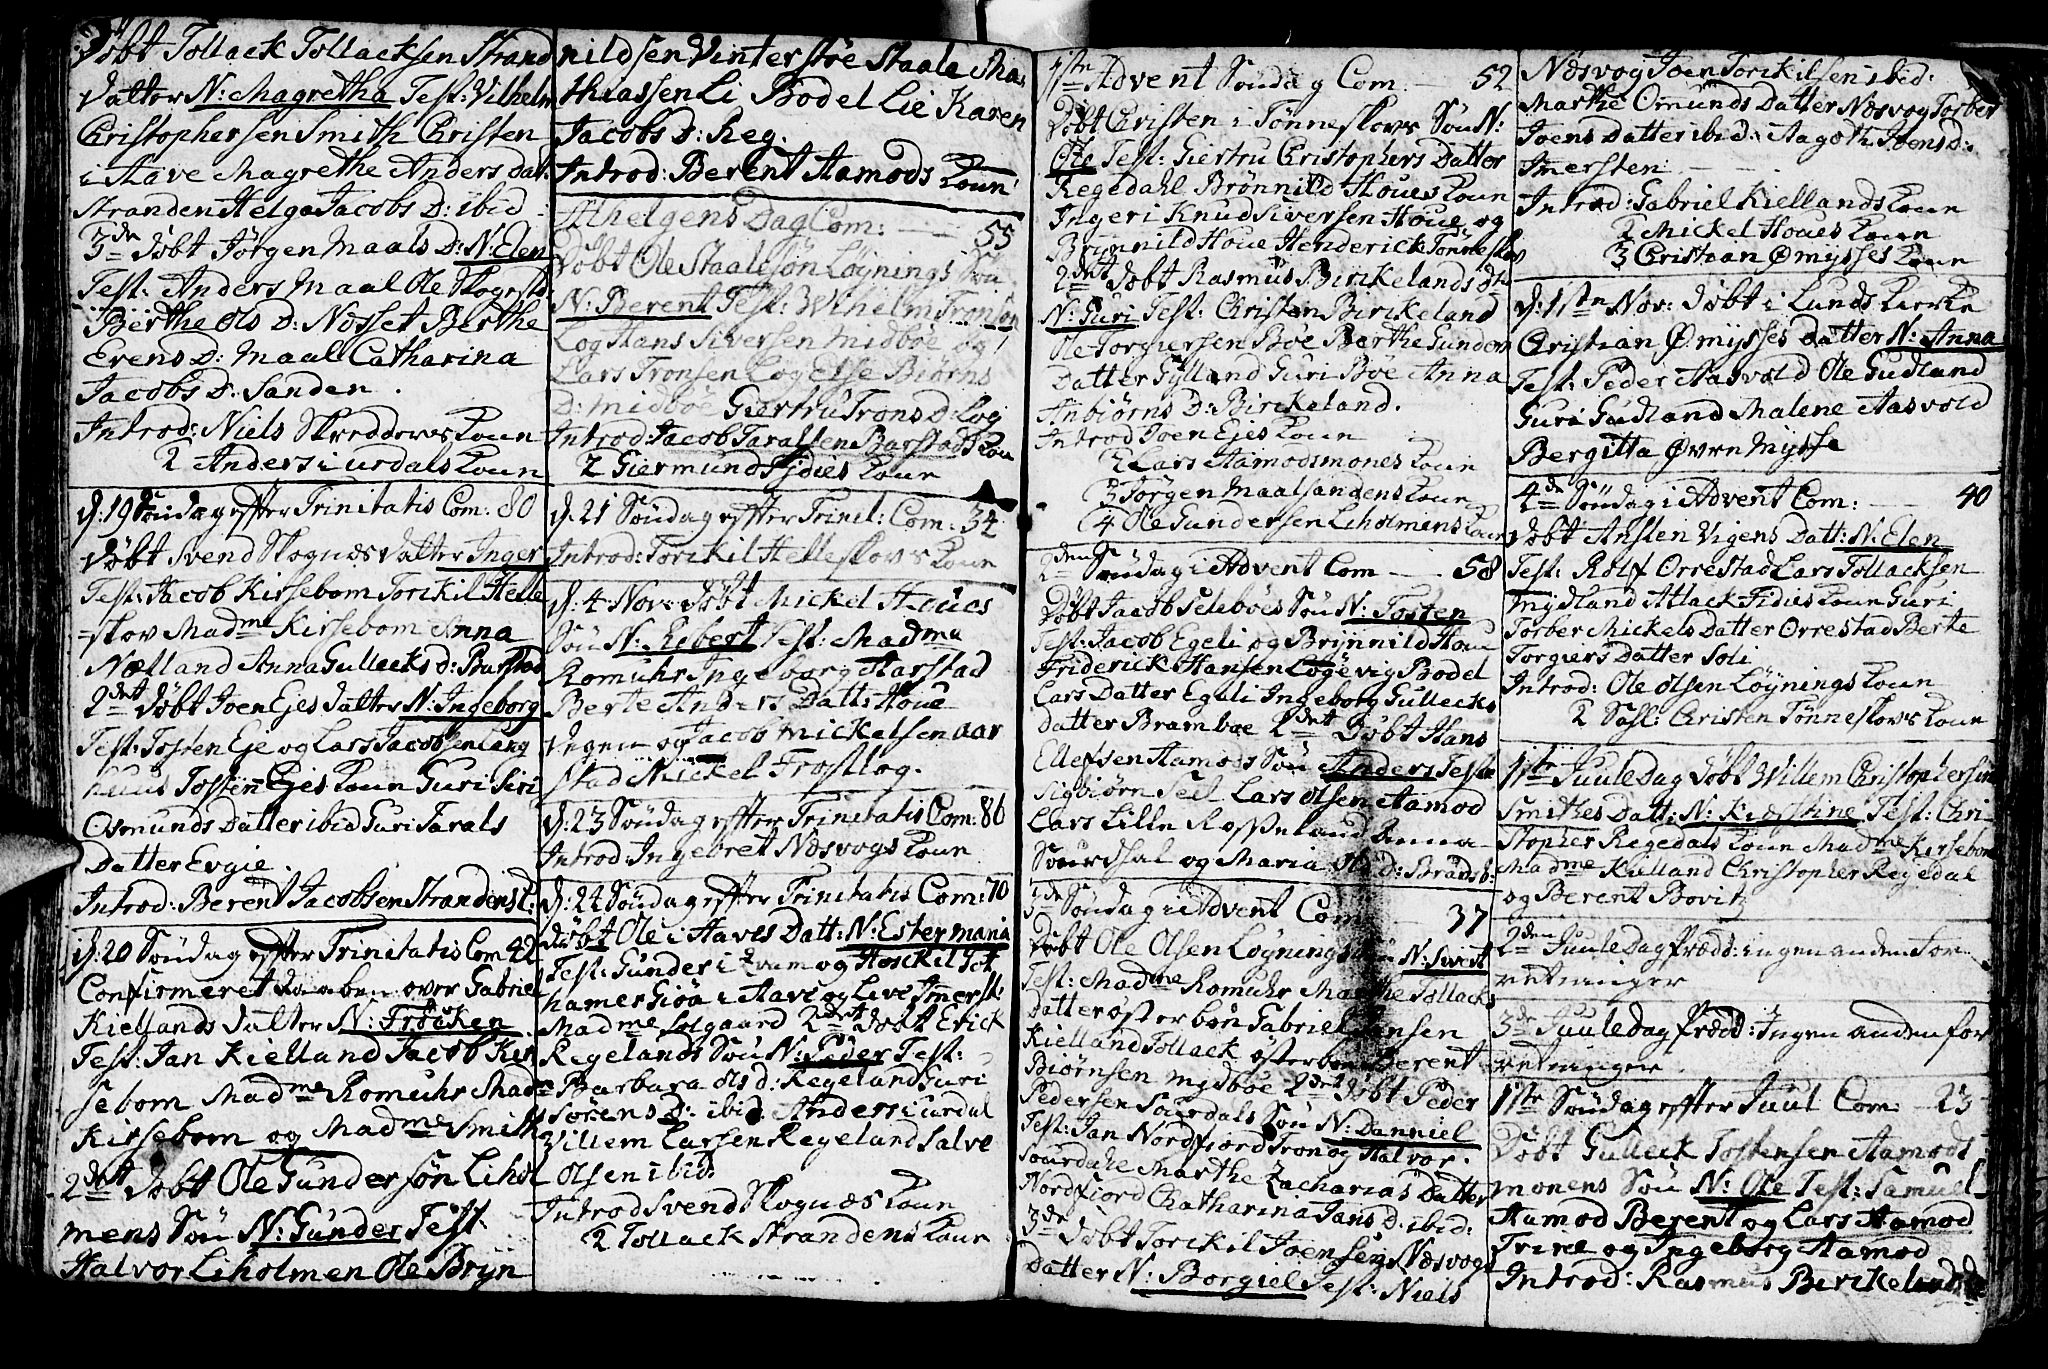 Døbt Tollack Tollacksen Strand
Datter N: Magretha Test: Vilhelm
Christophersen Smith Christen
i Aave Magrethe Anders Dat:
Stranden Helga Jacobs D: ibid
3de Døbt Jörgen Maals D: N: Elen
Test: Anders Maal Ole Skogestad
Berthe Ols D: Nösset Berthe
Evens D: Maal Catharina
Jacobs D: Sanden.
Introd: Niels Skredderes Kone
2 Anders i urdals Kone
D: 19 Söndag effter Trinitatis Com: 80
Døbt Svend Skognæs Datter Inger
Test: Jacob Kirsebom Torckil Helle
=skov Madme Kirsebom Anna
Næfland Anna Gullecks d: Barstad
2det Døbt Joen Ejes Datter N: Ingeborg
Test: Tosten Eje og Lars Jacobsen Lang
huus Tosten Ejes Kone Guri Siri
Osmunds Datter ibid Guri Tarals
Datter Evgie.
Introd: Berent Jacobsen Strandens K:
D: 20 Söndag effter Trinitatis Com 42
Confirmeret daaben over Gabriel
Kiellands Datter N: Fröcken
Test: Jan Kielland Jacob Kir
sebom Madme Romuhr Mad
Kirsebom og Madme Smith
2det Døbt Ole Gundersön Lihol
mens Sön N: Gunder Test
Halvor Liholmen Ole Bryn
nildsen Vinterstöe Staale Ma
thiassen Li Bodel Lie Karen
Jacobs D: Reg.
Introd: Berent Aamods Kone
Alhelgens Dag Com: 55
Døbt Ole Staalesön Löynings Sön
N: Berent Test: Wilhelm Tronsön
Log Hans Siversen Midböe og
Lars Tronsen Log Else Biörns
D: Midböe Giertru Trons D: Log
Introd: Jacob Taralsen Barstads Kone
2 Giermund Fidies Kone
D: 21 Söndag effter Trinit: Com: 34
Introd: Torckil Helleskovs Kone
D: 4 Nov: Døbt Mickel Houes
Sön N: Robert Test: Madme
Romuhr Ingeborg Harstad
Berte Anders Datt: Houe
Vegen og Jacob Mickelsen aar
stad Mickel Frostlog.
D: 23 Söndag effter Trinitatis Com: 86
Introd: Ingebret Næsvogs Kone
D: 24 Söndag effter Trinitatis Com: 70
Døbt Ole i Aaves Datt: N: Ester Maria
Test: Gunder i Qvam og Hosckil Tot
hamer Giöa i Aave og Live Imersk:
Madme Solgaard 2det Døbt Erick
Regelands Sön N: Peder Test:
Barbara Ols d: Regeland Guri
Sörens D: ibid Anders i urdal
Villem Larsen Regeland Salve
Olsen ibid
Introd Svend Skognæs Kone
2 Tollack Strandens Kone
1ste Advent Söndag Com. 52
Døbt Christen i Tönneskovs Sön N:
Ole Test: Giertru Christophers Datter
Regedahl Brönnild Houes Kone
Ingeri Knud Siversen Houe og
Brynnild Houe Henderick Tönneskov
2det Døbt Rasmus Birckelands dtr
N: Guri Test: Christen Birckeland
Ole Torgiersen Böe Berthe Gunders
Datter Gylland Guri Böe Anna
Anbiörns D: Birckeland.
Introd Joen Ejes Kone
2 Lars Aamodsmones Kone
3 Jörgen Maalsandens Kone
4 Ole Gundersen Liholmens Kone
2den Söndag i Advent Com 58
Døbt Jacob Seleböes Sön N: Tosten
Test: Jacob Egeli og Brynnild Houe
Friderick Hansen Logevig Bodel
Lars Datter Egeli Ingeborg Gullecks
datter Bramboe 2det Døbt Hans
Ellefsen Aamods Sön Anders Test:
Sigbiörn Seel Lars Olsen Aamod
Lars Lille Rosseland Anna
Sourdhal og Maria Ols d: Brådsb:
3de Söndag i Advent Com 37
Døbt Ole Olsen Löynings Sön N: Sivert
Test: Madme Romuhr Marthe Tollacks
datter österboe Gabriel Jansen
Kielland Tollack österboe Berent
Biörnsen Mydböe 2det Døbt Peder
Pedersen Sourdals Sön N: Danniel
Test: Jan Nordfiord Tron og Halvor
Sourdahl Marthe Zacharias Datter
Nordfiord Chatharina Jans D: ibid:
3de Døbt Torckil Joensen Næsvogs
Datter N: Borgiel Test: Niels
Næsvog Joen Torckilsen ibid:
Marthe Omunds Datter Næsvog Torber
Joens Datter ibid: Aagothe Joens D:
Imersten:
Introd: Gabriel Kiellands Kone
2 Mickel Houes Kone
3 Christian Ømysses Kone
D: 11ten Nov: Døbt i Lunds Kircke
Christian Ømysses Datter N: Anna
Test: Peder Aasvold Ole Gudland
Guri Gudland Malene Aasvold
Bergitta Øvren Mysse
4de Söndag i Advent Com: 40
Døbt Ansten Vigens Datt: N: Elen
Test: Rolf Orrestad Lars Tollacksen
Mydland Atlack Fidies Kone Guri
Torber Mickels Datter Orrestad Berte
Torgiers Datter Soli
Introd: Ole Olsen Löynings Kone
2 Sahl: Christen Tönneskovs Kone
1ste Juule Dag Døbt Willem Christophersen
Smithes Datt: N: Kirstine Test: Chri
stopher Regedals Kone Madme Kirsebom
Madme Kielland Christopher Regedal
og Berent Bovitz
2den Juule Dag Præd: ingen anden For
retninger
3de Juule Dag Præd: Ingen anden for
retninger.
1ste Söndag effter Juul Com: 23
Døbt Gulleck Tostensen Aamodt
monens Sön N: Ole Test: Samuel
Aamod Berent og Lars Aamod
Trine og Ingeborg Aamod
Introd: Rasmus Birckelands